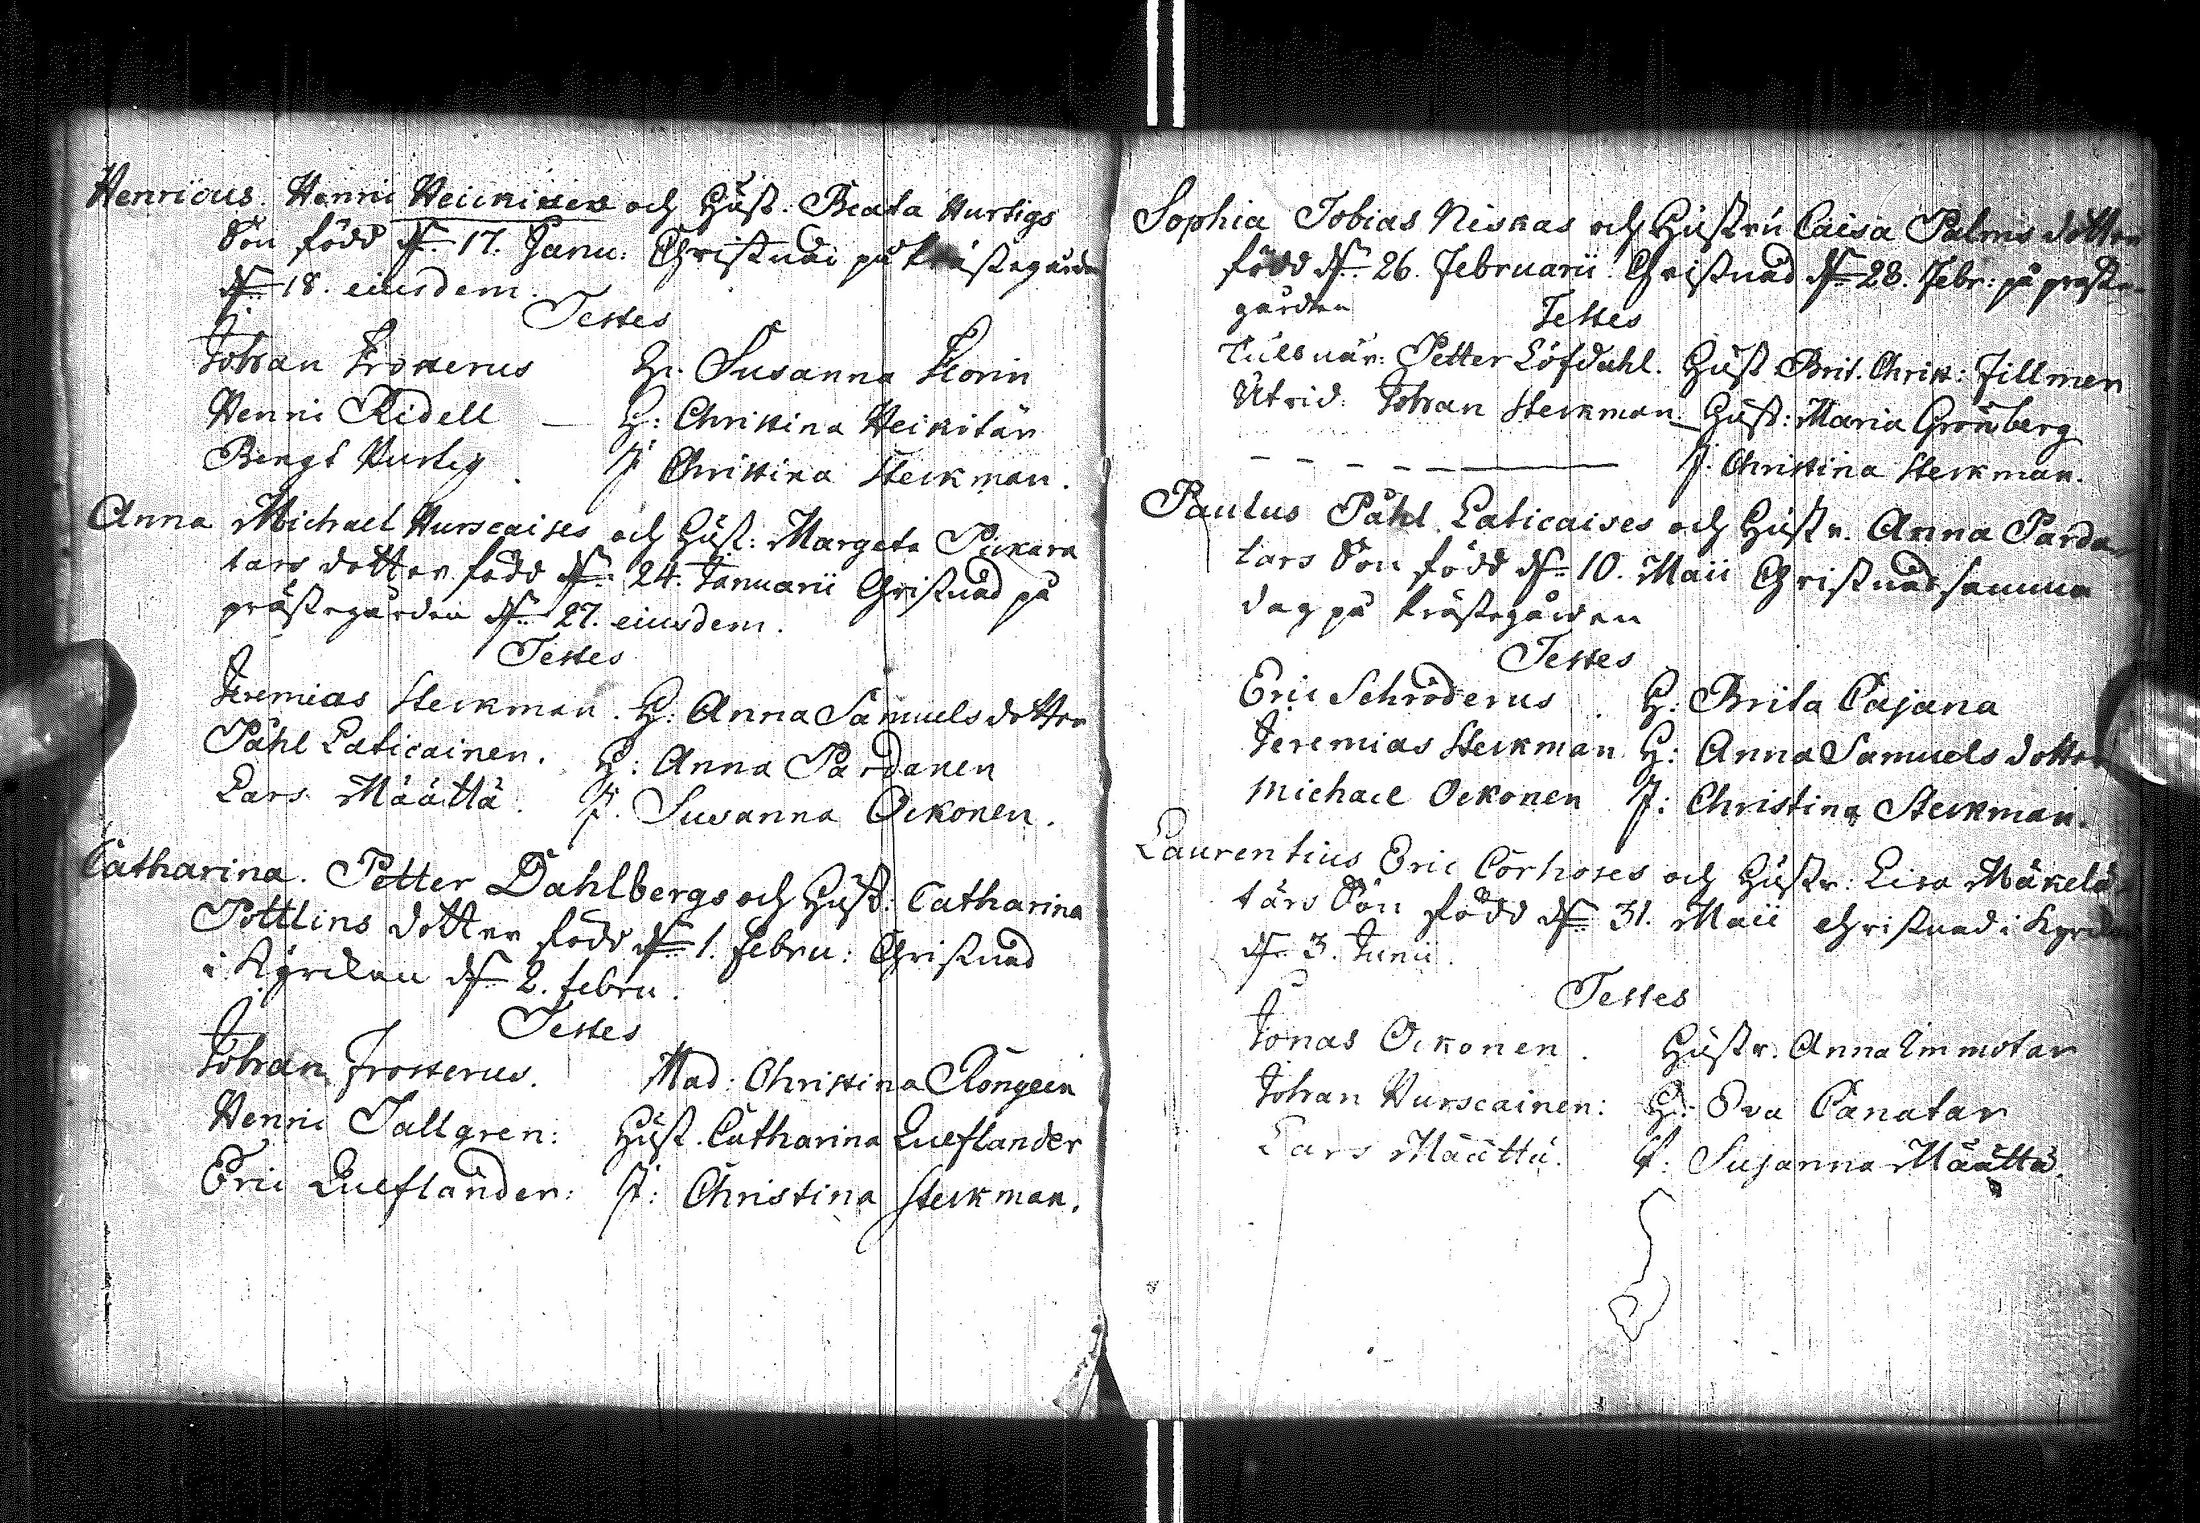 Henricus. Henric Heickises och Hust. Beata Hurtigs
Son född d. 17. Janu: Christnad på Prästegården
d. 18. eiusdem.
Testes
Johan Frosterus H. Susanna Florin
Henric Ridell — H: Christina Heikitär
Bengt Hurtig. P Christina Steckman.
Anna Michael Hurscaises och Hust: Margeta Pickara
tars dotter född d. 24. Januarii Christnad på
prästegården d. 27. eiusdem.
Testes
Jeremias Steckman. H: Anna Samuels dotter
Påhl Laticainen. H: Anna Pardanen
Lars Määttä. P. Susanna Ockonen.
Catharina. Petter Dahlbergs och Hust: Catharina
Pottlins dotter född d. 1. Febru: Christnad
i Kyrckan d. 2. febru.
Testes
Johan Frosterus. Mad: Christina
Henric Tallgren: Hust. Catharina Lueflander
Eric Lueflander: P: Christina Steckman.
Sophia Tobias Niskas och Hustru Caisa Palms dotter
född d. 26. Februarii. Christnad d. 28. Febr: på präste
gården
Testes
Tullnär: Petter Löfdahl. Hust Brit. Christ: Fillmer
Utrid: Johan Steckman. Hust: Maria Grönberg
P. Christina Steckman.
Paulus Påhl Laticaises och Hustr. Anna Parda
tars Son född d. 10. Maii Christnad samma
dag på Prästegården
Testes
Eric Schröderus. H: Brita Cajana
Jeremias Steckman H: Anna Samuels dotter
Michael Ockonen P: Christina Steckman.
Laurentius Eric Corhoses och Hustr: Lisa Mäkelä
tärs Son född d. 31. Maii Christnad i Kyrckan
d. 3. Junii.
Testes
Jonas Ockonen. Hustr. Anna Immotar
Johan Hurscainen: H: Eva Canatar
Lars Määttä. P: Susanna Määttä.